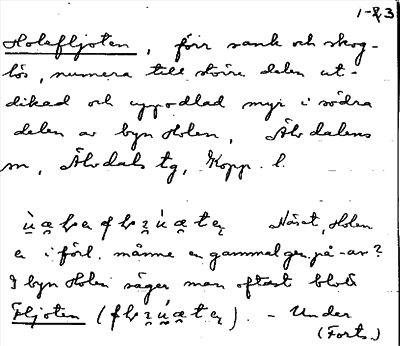 1-23
Holafljoten, förr sank och skog-
lös, numera till större delen ut-
dikad och uppodlad myr i södra
delen av byn Holen, Älvdalens
sn, Älvdals tg, Kopp. l.
Näset, Holen
e i förl. månne en gammal gen. på -av?
I byn Holen säger man oftast blott
Fljoten ( ). - Under
(Forts.)